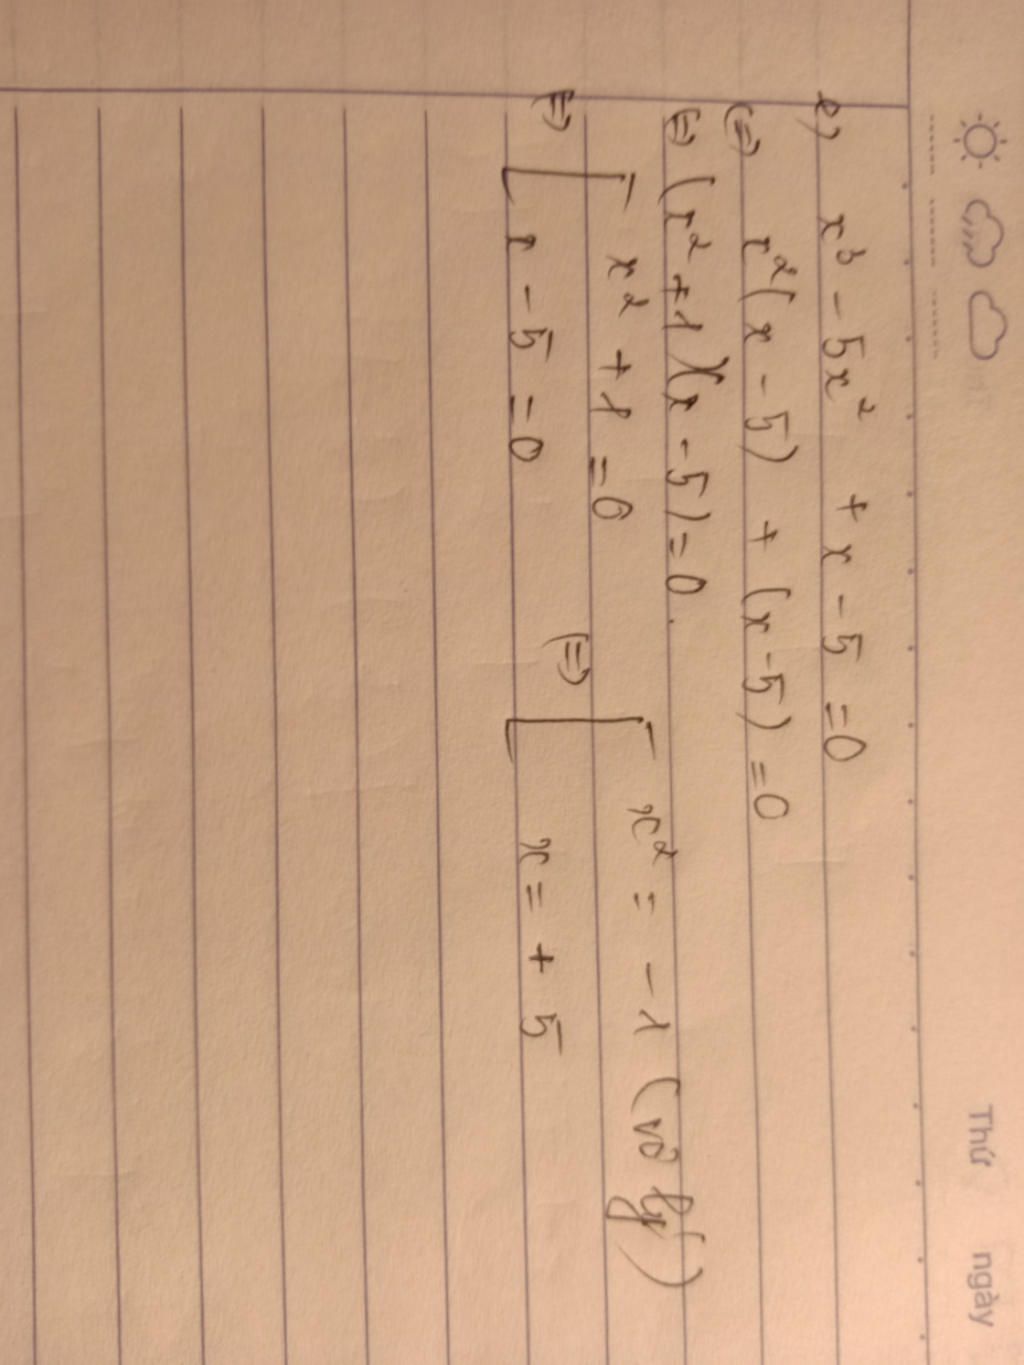 Thứ ngày
e) x³ - 5x² + x - 5 = 0
(=) x²(x - 5) + (x - 5) = 0
(=) (x² + 1)(x - 5) = 0.
(=) [ x² + 1 = 0 (=) [ x² = -1 (vô lý)
x - 5 = 0 x = + 5